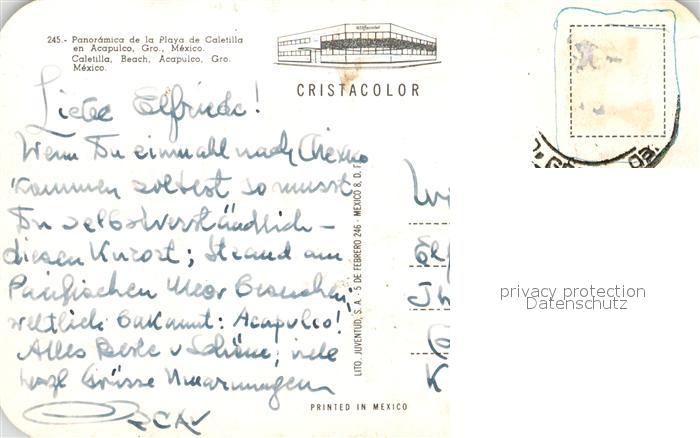 245.- Panorámica de la Playa de Caletilla
en Acapulco, Gro., México.
Caletilla, Beach, Acapulco, Gro.
México.
CRISTACOLOR
Liebe Elfriede!
Wenn Du einmahl nach Mexico
kommen soltest so musst
Du selbstverständlich
diesen Kurort; Strand am
Pacifischen Meer Besuchen;
weltlich bekannt: Acapulco!
Alles Beste u Schöne; viele
herzl Grüsse Umarmungen
OSCAR
LITO. JUVENTUD, S. A. - 5 DE FEBRERO 246 - MEXICO 8, D. F.
PRINTED IN MEXICO
privacy protection
Datenschutz